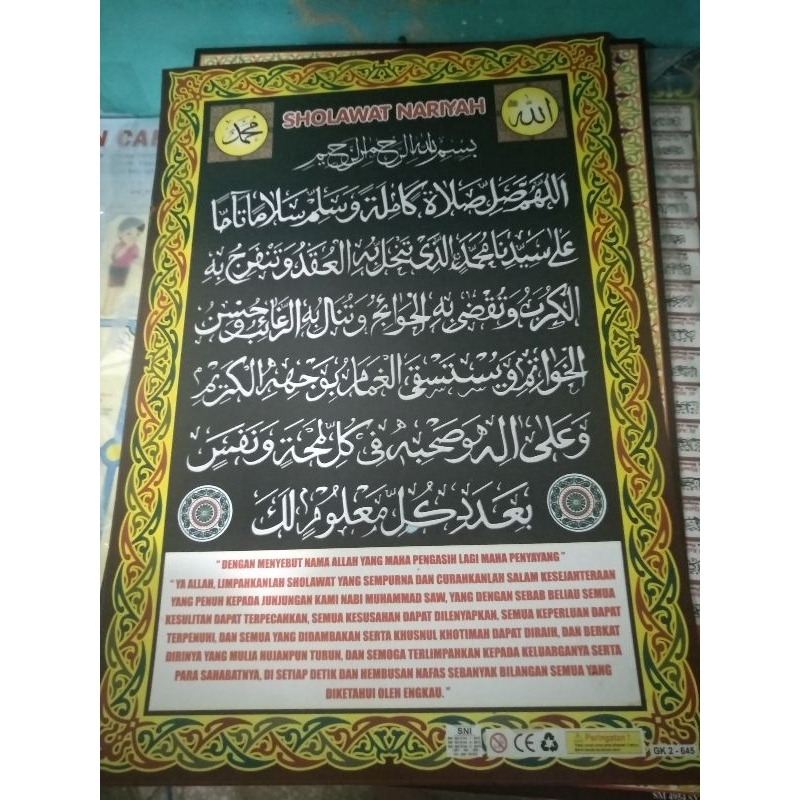 SHOLAWAT NARIYAH
محمد
الله
بسم الله الرحمن الرحيم
اللهم صل صلاة كاملة وسلم سلاما تاما
على سيدنا محمد الذى تنحل به العقد وتنفرج به
الكرب وتقضى به الحوائج وتنال به الرغائب وحسن
الخواتم ويستسقى الغمام بوجهه الكريم
وعلى اله وصحبه فى كل لمحة ونفس
بعدد كل معلوم لك
" DENGAN MENYEBUT NAMA ALLAH YANG MAHA PENGASIH LAGI MAHA PENYAYANG "
" YA ALLAH, LIMPAHKANLAH SHOLAWAT YANG SEMPURNA DAN CURAHKANLAH SALAM KESEJAHTERAAN
YANG PENUH KEPADA JUNJUNGAN KAMI NABI MUHAMMAD SAW, YANG DENGAN SEBAB BELIAU SEMUA
KESULITAN DAPAT TERPECAHKAN, SEMUA KESUSAHAN DAPAT DILENYAPKAN, SEMUA KEPERLUAN DAPAT
TERPENUHI, DAN SEMUA YANG DIDAMBAKAN SERTA KHUSNUL KHOTIMAH DAPAT DIRAIH, DAN BERKAT
DIRINYA YANG MULIA HUJANPUN TURUN, DAN SEMOGA TERLIMPAHKAN KEPADA KELUARGANYA SERTA
PARA SAHABATNYA, DI SETIAP DETIK DAN HEMBUSAN NAFAS SEBANYAK BILANGAN SEMUA YANG
DIKETAHUI OLEH ENGKAU. "
SNI
CE
Peringatan !
GK 2 - 645